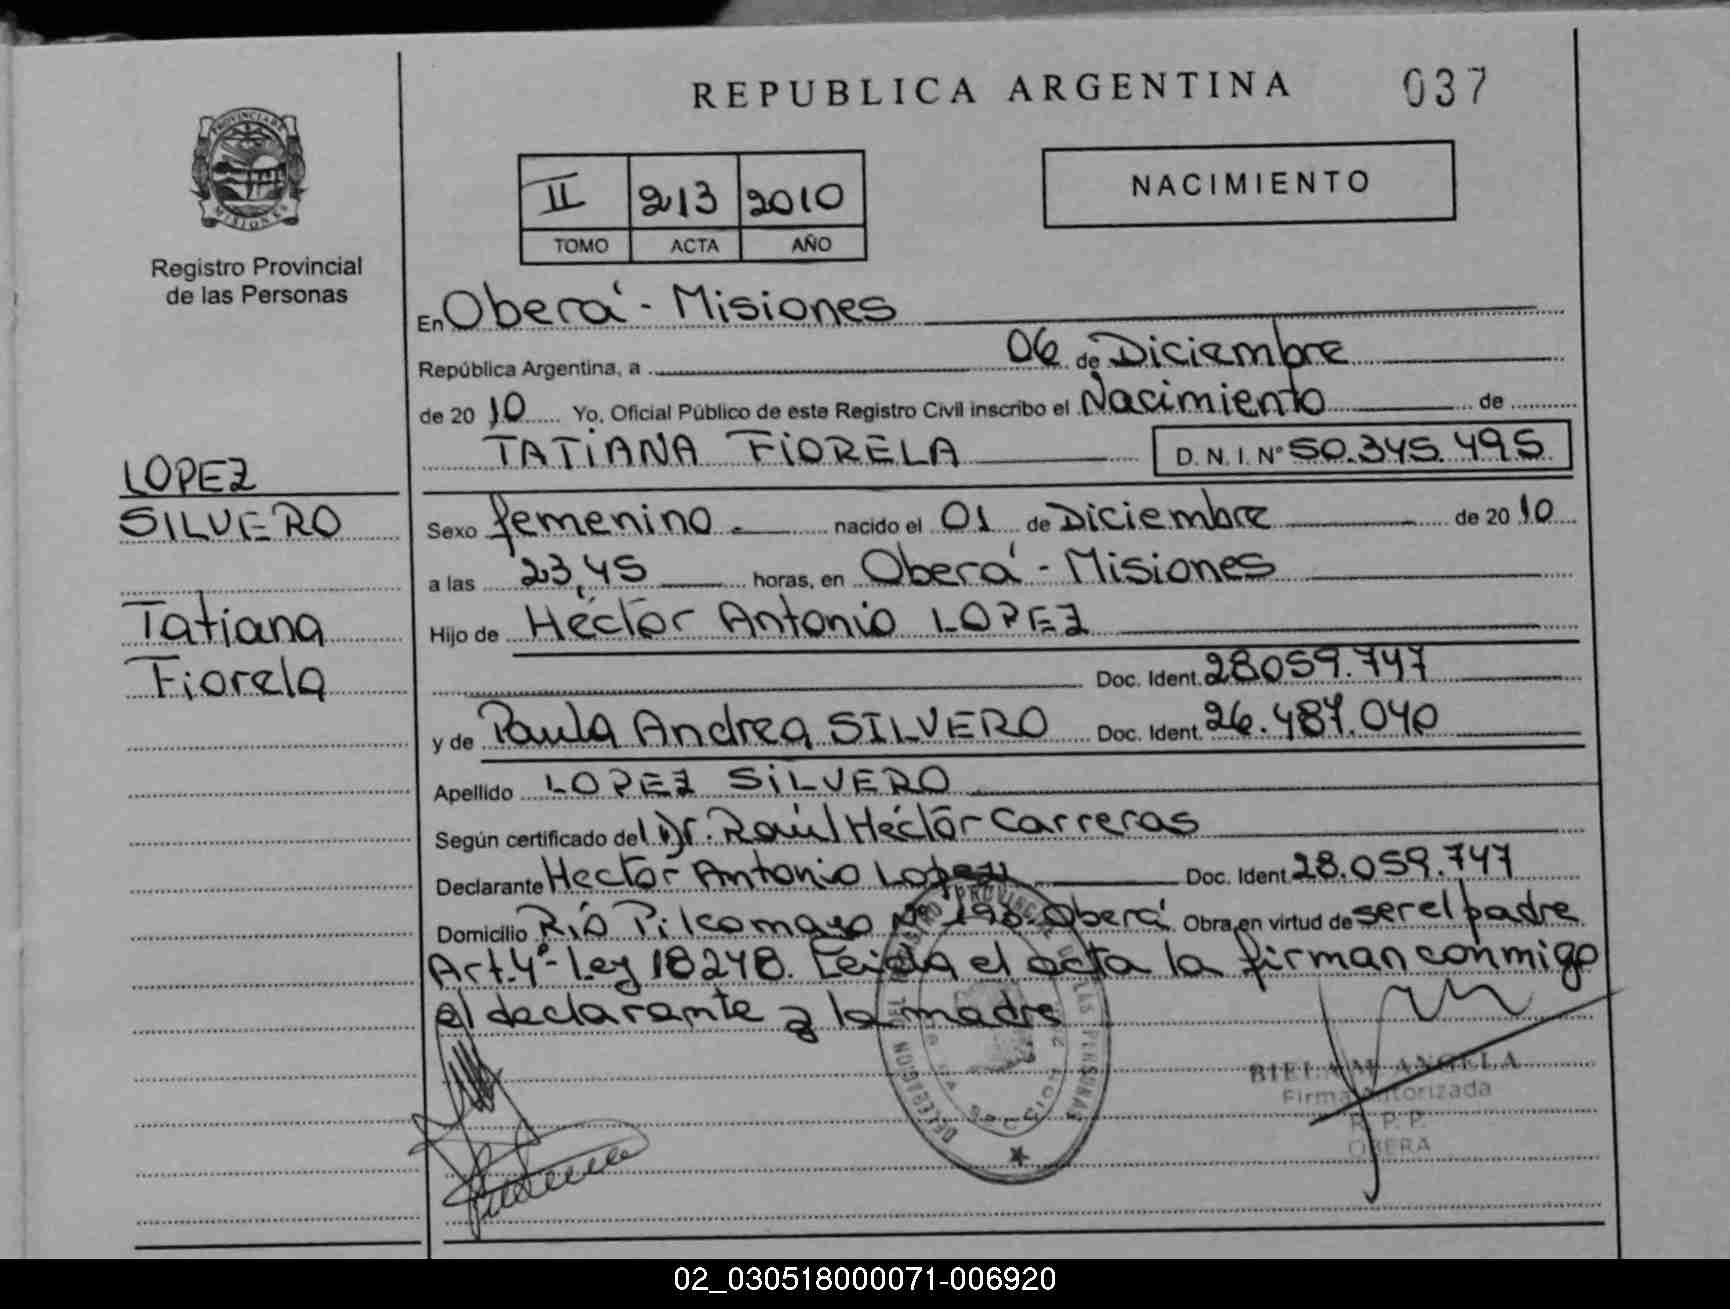 REPUBLICA ARGENTINA
037
PROVINCIA DE
MISIONES
Registro Provincial
de las Personas
II 213 2010
TOMO ACTA AÑO
NACIMIENTO
En Oberá - Misiones
República Argentina, a 06 de Diciembre
de 2010 Yo, Oficial Público de este Registro Civil inscribo el Nacimiento de
TATIANA FIORELA D. N. I. N° 50.345.495
LOPEZ
SILVERO
Tatiana
Fiorela
Sexo femenino nacido el 01 de Diciembre de 2010
a las 23,45 horas, en Oberá - Misiones
Hijo de Héctor Antonio LOPEZ
Doc. Ident. 28.059.747
y de Paula Andrea SILVERO Doc. Ident. 26.487.040
Apellido LOPEZ SILVERO
Según certificado del Dr. Raúl Héctor Carreras
Declarante Hector Antonio Lopez Doc. Ident. 28.059.747
Domicilio Río Pilcomayo Nº 198. Oberá Obra en virtud de ser el padre
Art. 4º - Ley 18248. Leida el acta la firman conmigo
el declarante y la madre
DELEGACION DEL REGISTRO PROVINCIAL DE LAS PERSONAS
ANGELA
Firma Autorizada
R. P. P.
OBERA
02_030518000071-006920